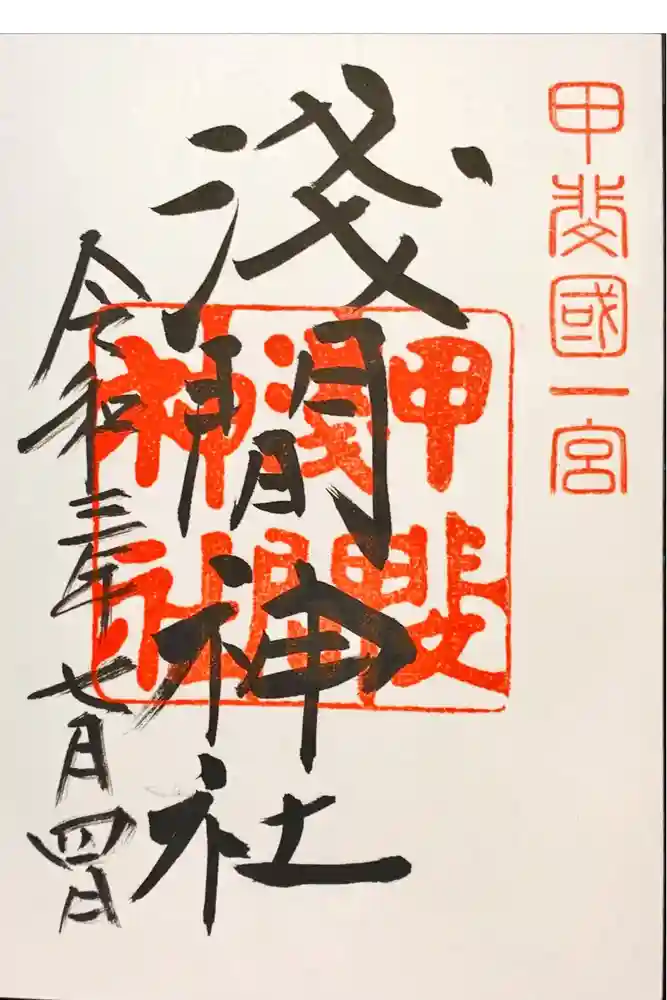 甲斐國一宮
淺間神社
甲斐
淺間
神社
令和三年七月四日